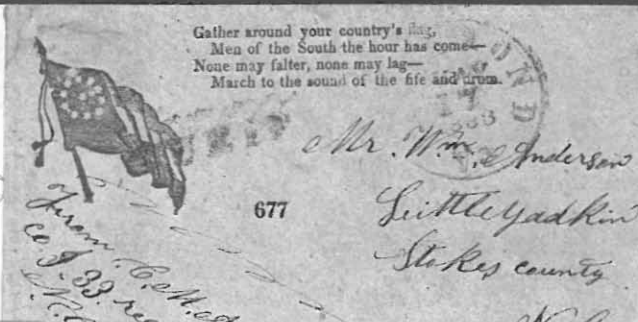 Gather around your country's flag,
Men of the South the hour has come—
None may falter, none may lag—
March to the sound of the fife and drum.
Mr. Wm. Anderson
Little Yadkin
Stokes county
N. C.
677
From C. M. A
Co I. 33 reg
N. C